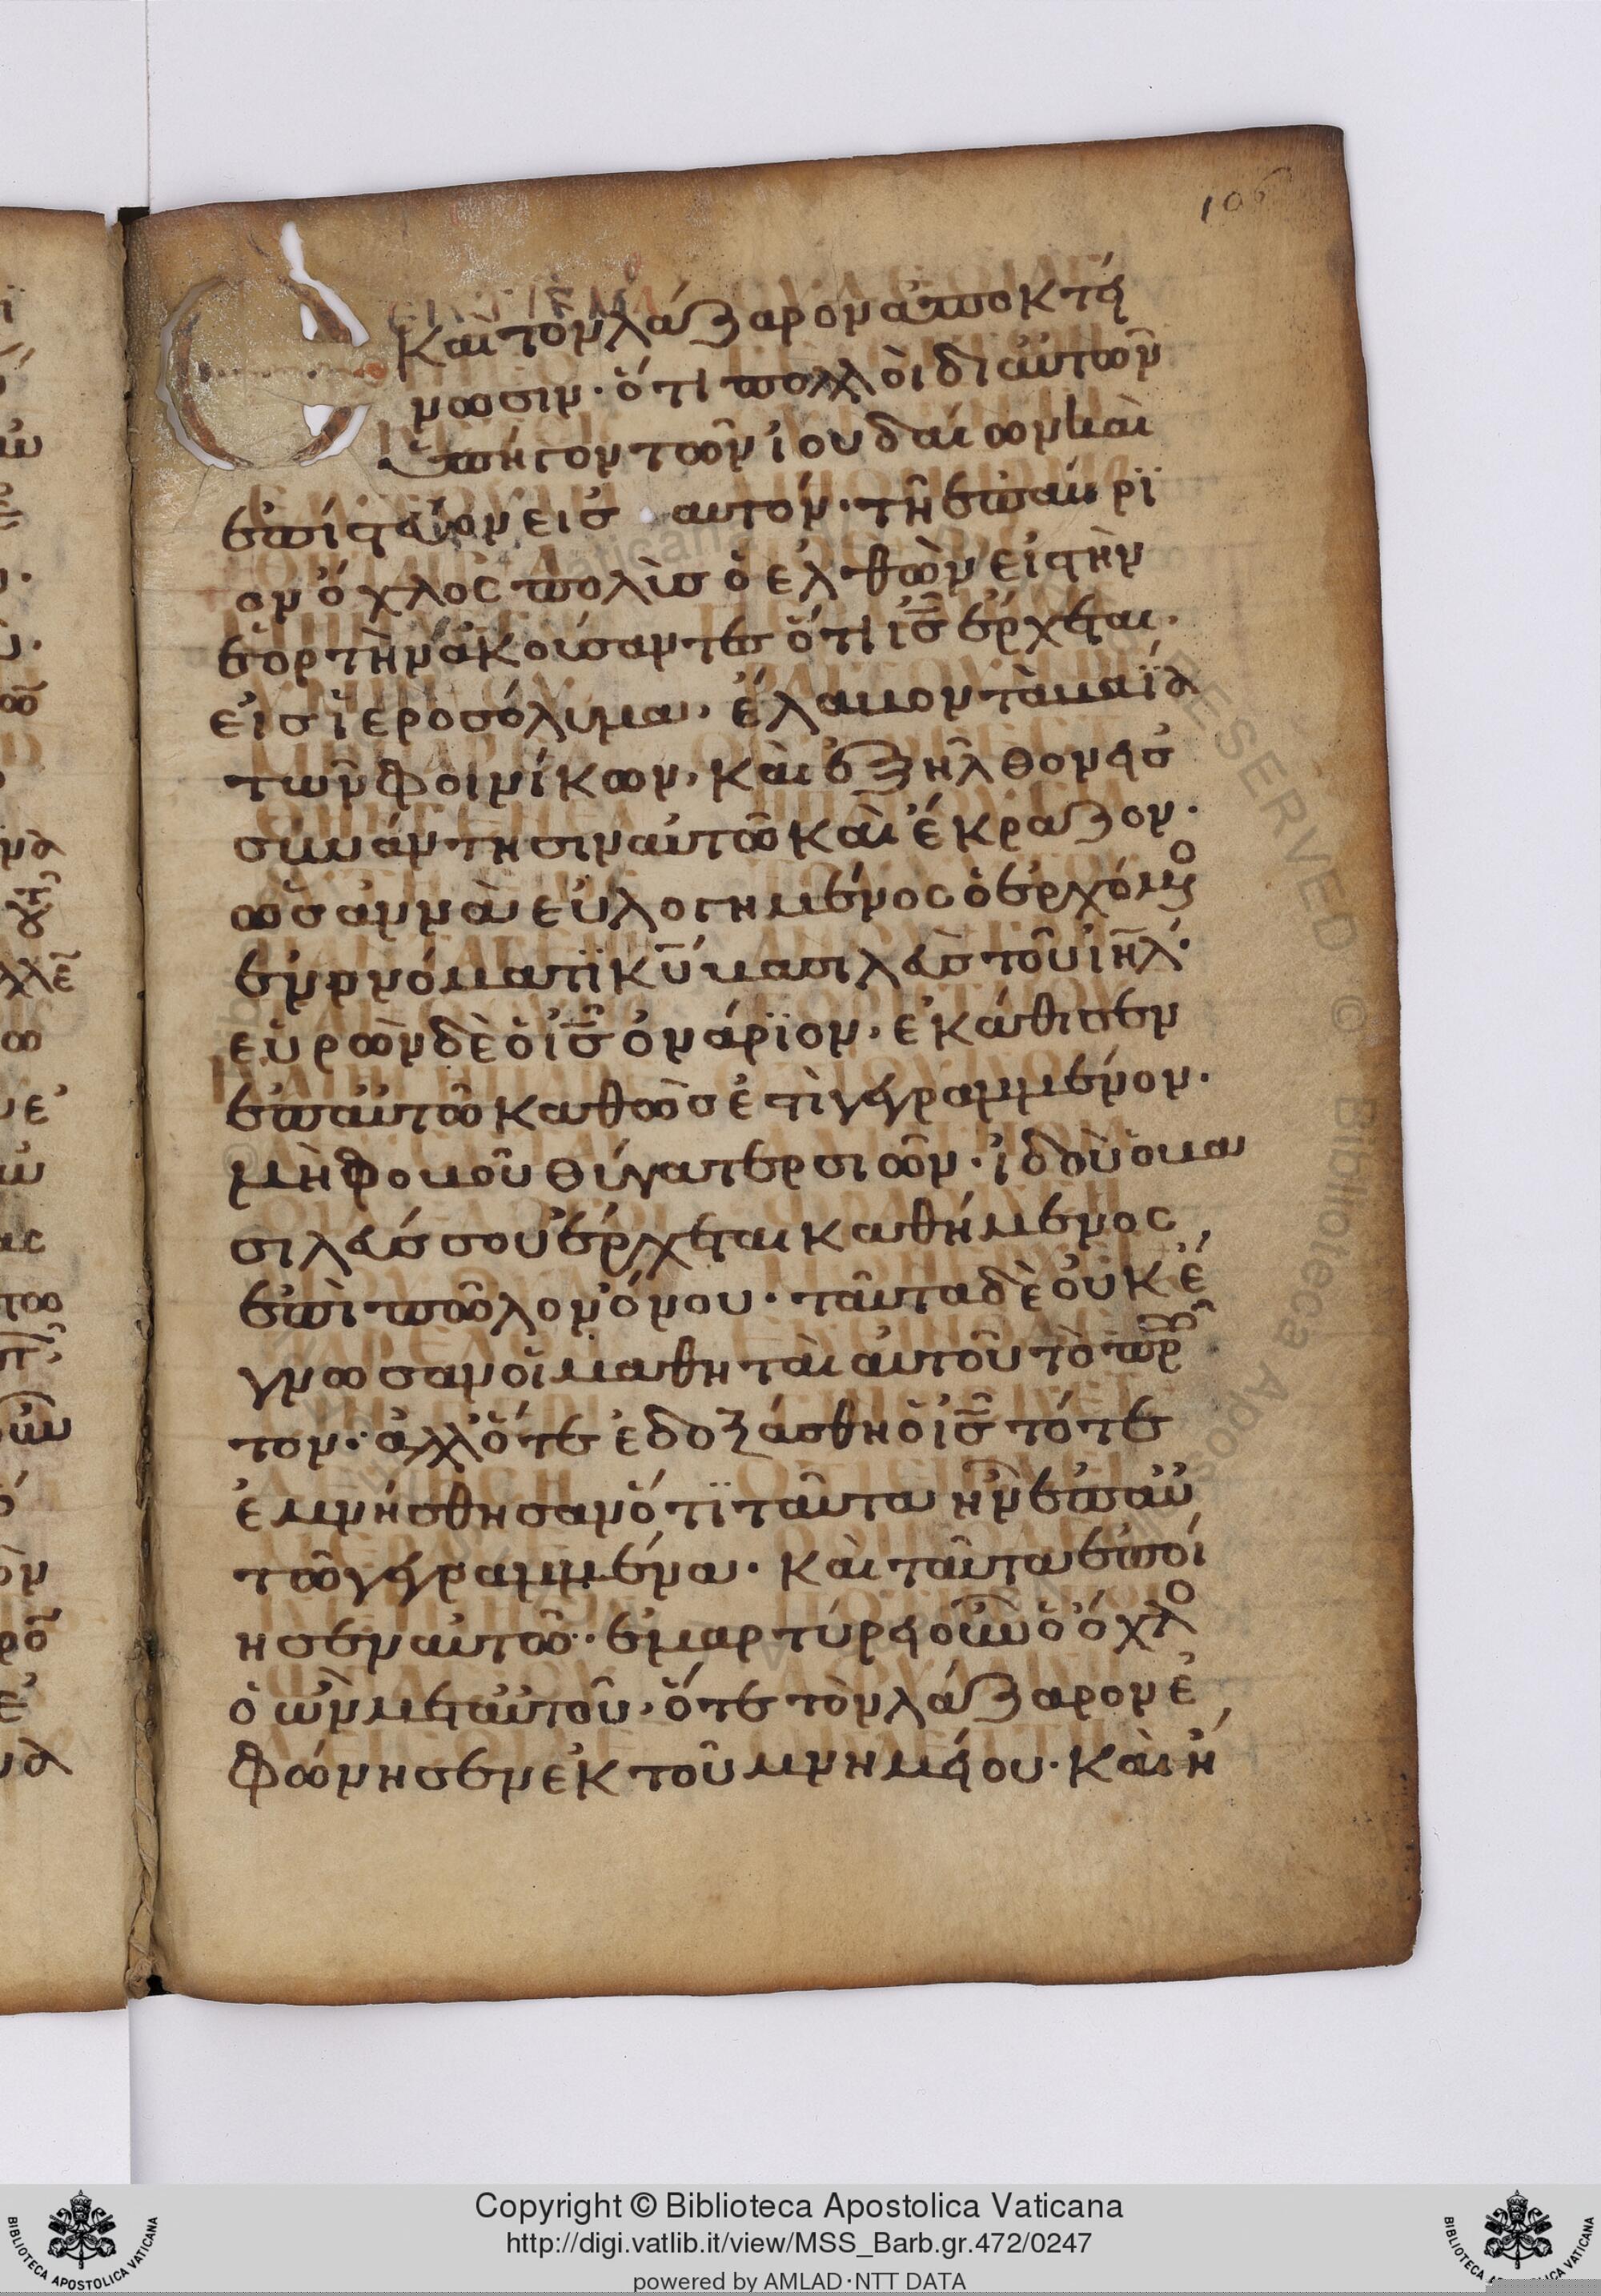 106
καὶ τὸν λάζαρον ἀποκτεί
νωσιν· ὅτι πολλοὶ δι αὐτῶν
ὑπήγον τῶν ἰουδαίων καὶ
ἐπίστευον εἰσ αυτόν· τῆ ἐπαύρϊ
ον ὄχλος πολὺσ ὁ ἐλθὼν εἰς τὴν
ἑορτὴν ἀκούσαντες ὅτι ἰ̅σ̅ ἔρχεται·
εἰσ ἱεροσόλυμα, ἔλαβον τὰ βαΐα
τῶν φοινίκων, καὶ ἐξῆλθον εἰσ
συνάντησιν αὐτῶ καὶ ἔκραζον·
ὡσἀννὰ εὐλογημένος ὁ ἐρχόμο
ἐν ὀνόματϊ κ̅υ̅ βασιλεὺσ τοῦ ἰη̅λ̅·
εὑρὼν δὲ ὁ ἰ̅σ̅ ὀνάρϊον, ἐκάθισεν
ἐπ αὐτῶ καθώσ ἐστι γεγραμμένον·
μὴ φοβοῦ θύγατερ σιῶν· ἰδοὺ ὁ βα
σιλεύσ σου ἔρχεται καθήμενος,
ἐπὶ πῶλον ὄνου· ταῦτα δὲ οὐκ ἔ
γνωσαν οἱ μαθηταὶ αὐτοῦ τὸ πρῶ
τον· ἀλλ ὅτε ἐδοξάσθη ὁ ἰ̅σ̅ τότε
ἐμνήσθησαν ὅτϊ ταῦτα ἦν ἐπ αὐ
τῶ γεγραμμένα· καὶ ταῦτα ἐποί
ησεν αὐτῶ· ἐμαρτύρει οὖν ὁ ὄχλο
ὁ ὢν μετ αὐτοῦ, ὅτε τὸν λάζαρον ἐ
φώνησεν ἐκ τοῦ μνημείου· καὶ ἤ,
Copyright © Biblioteca Apostolica Vaticana
http://digi.vatlib.it/view/MSS_Barb.gr.472/0247
powered by AMLAD·NTT DATA
BIBLIOTECA APOSTOLICA VATICANA
BIBLIOTECA APOSTOLICA VATICANA